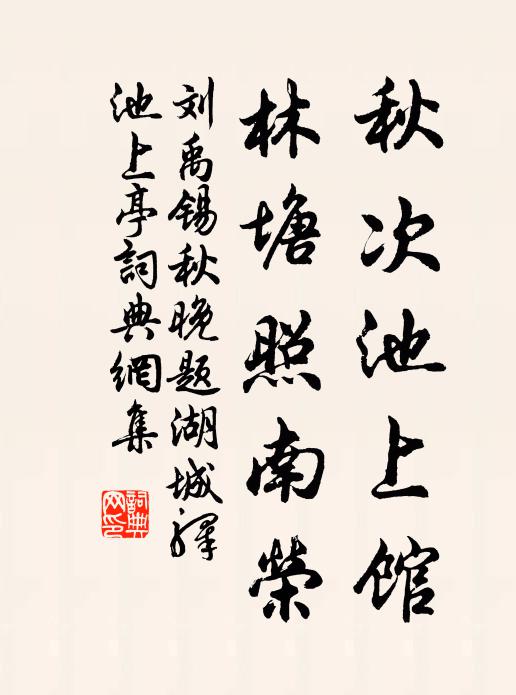 秋次池上館
林塘照南榮
刘禹锡秋晚题湖城驛
池上亭詞典網集
詞典
网印